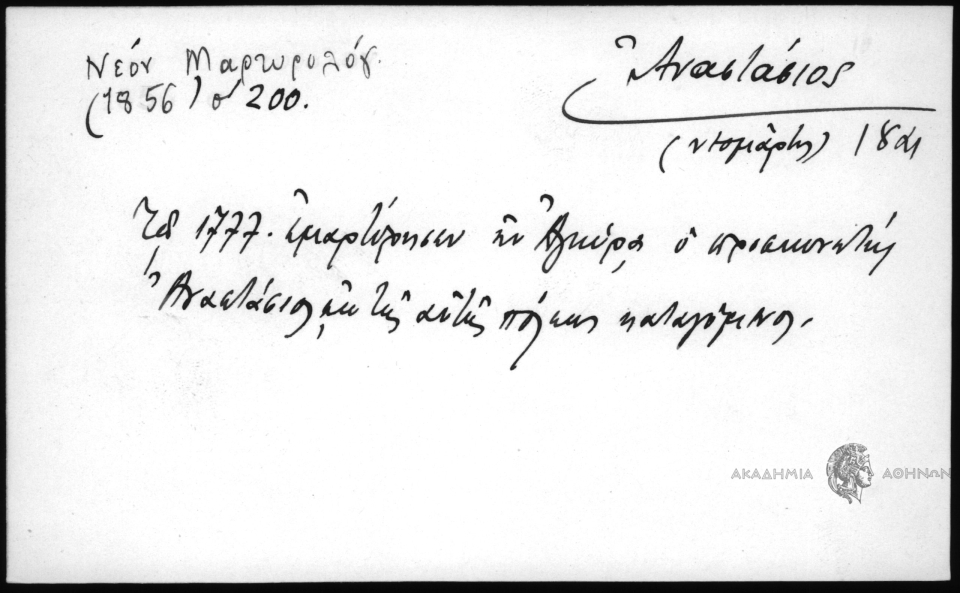 Νέον Μαρτυρολόγ.
(1856) σ 200.
Ἀναστάσιος
(νεομάρτης) 1821
Τῷ 1777. ἐμαρτύρησεν ἐν Ἀγκύρᾳ ὁ προσκυνητής
Ἀναστάσιος, ἐκ τῆς αὐτῆς πόλεως καταγόμενος.
ΑΚΑΔΗΜΙΑ ΑΘΗΝΩΝ